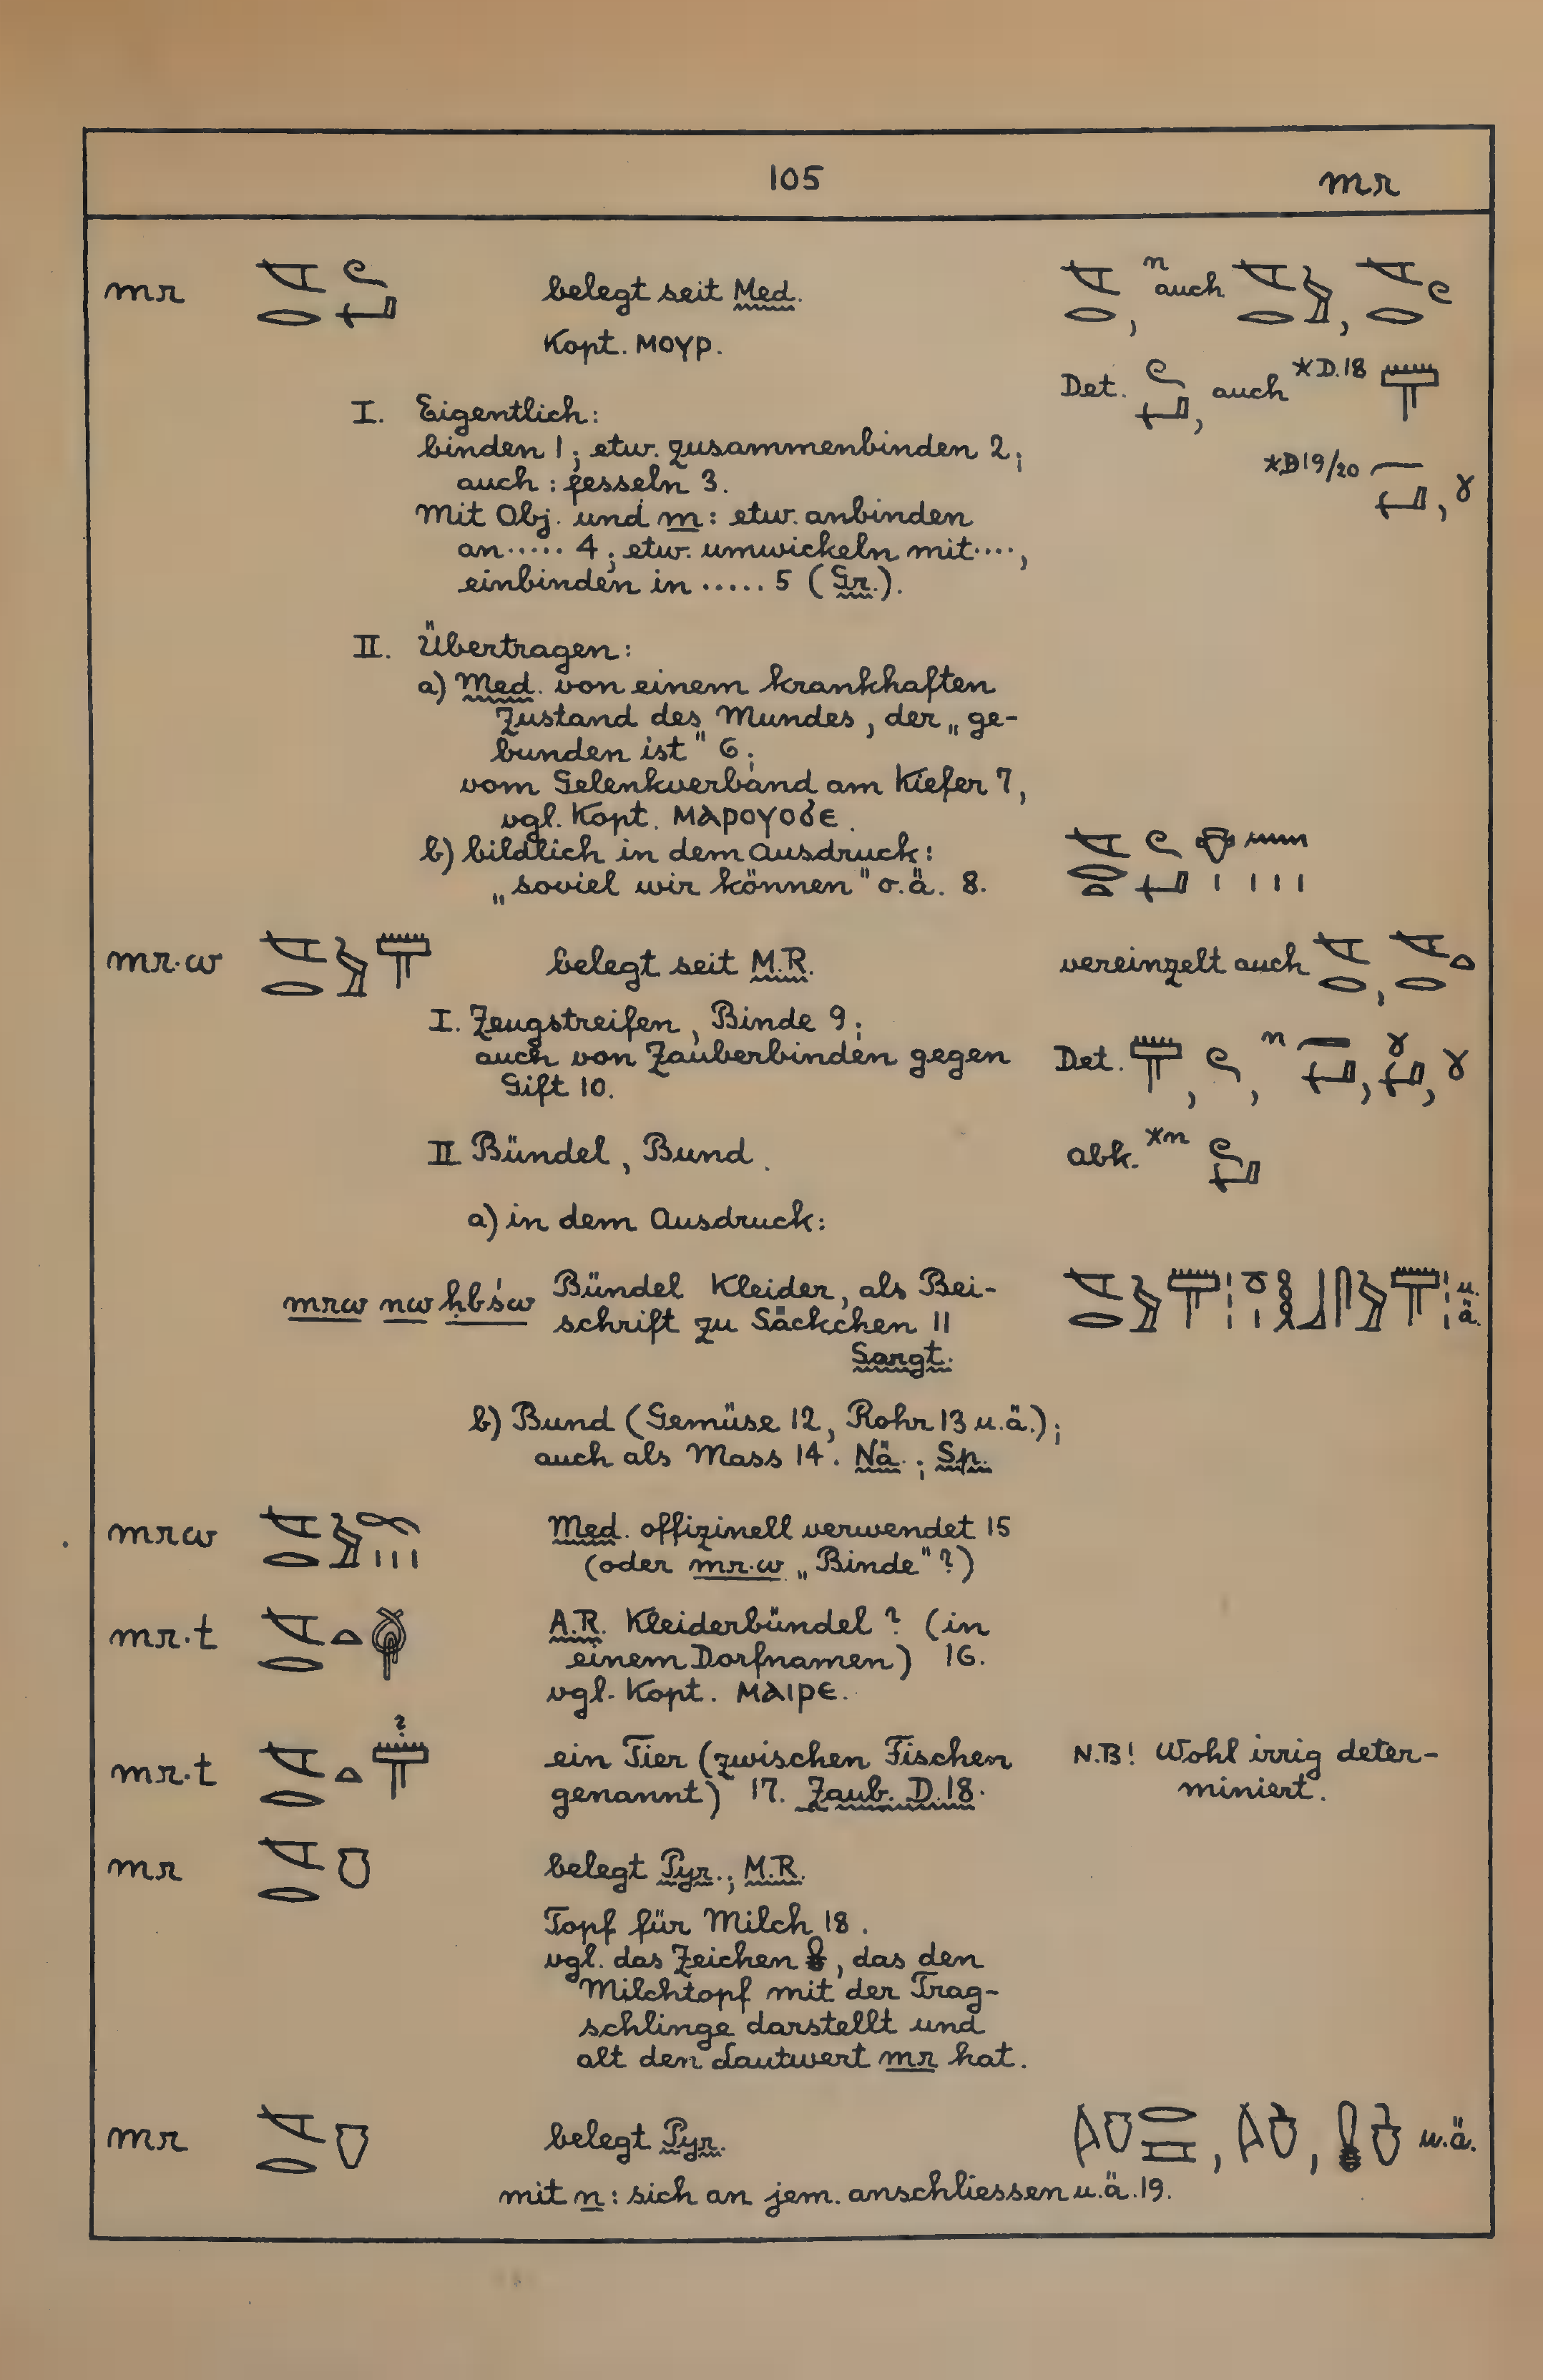 105 mr
mr belegt seit Med. auch
Kopt. ⲙⲟⲩⲣ.
Det. , auch *D.18
I. Eigentlich:
binden 1; etw. zusammenbinden 2;
auch: fesseln 3. *D19/20
Mit Obj. und m: etw. anbinden
an ..... 4; etw. umwickeln mit ....,
einbinden in ..... 5 (Gr.).
II. Übertragen:
a) Med. von einem krankhaften
Zustand des Mundes, der „ge-
bunden ist" 6;
vom Gelenkverband am Kiefer 7,
vgl. Kopt. ⲙⲁⲣⲟⲩⲟϭⲉ.
b) bildlich in dem Ausdruck:
„soviel wir können" o.ä. 8.
mr·w belegt seit M.R. vereinzelt auch
I. Zeugstreifen, Binde 9;
auch von Zauberbinden gegen Det.
Gift 10.
II Bündel, Bund. abk. *n
a) in dem Ausdruck:
mrw nw ḥbśw Bündel Kleider, als Bei- u.
schrift zu Säckchen 11 ä.
Sargt.
b) Bund (Gemüse 12, Rohr 13 u.ä.);
auch als Mass 14. Nä.; Sp.
mrw Med. offizinell verwendet 15
(oder mr·w „Binde"?)
mr·t A.R. Kleiderbündel? (in
einem Dorfnamen) 16.
vgl. Kopt. ⲙⲁⲓⲣⲉ.
mr·t ? ein Tier (zwischen Fischen N.B! Wohl irrig deter-
genannt) 17. Zaub. D.18. miniert.
mr belegt Pyr.; M.R.
Topf für Milch 18.
vgl. das Zeichen , das den
Milchtopf mit der Trag-
schlinge darstellt und
alt den Lautwert mr hat.
mr belegt Pyr. u.ä.
mit n: sich an jem. anschliessen u.ä. 19.